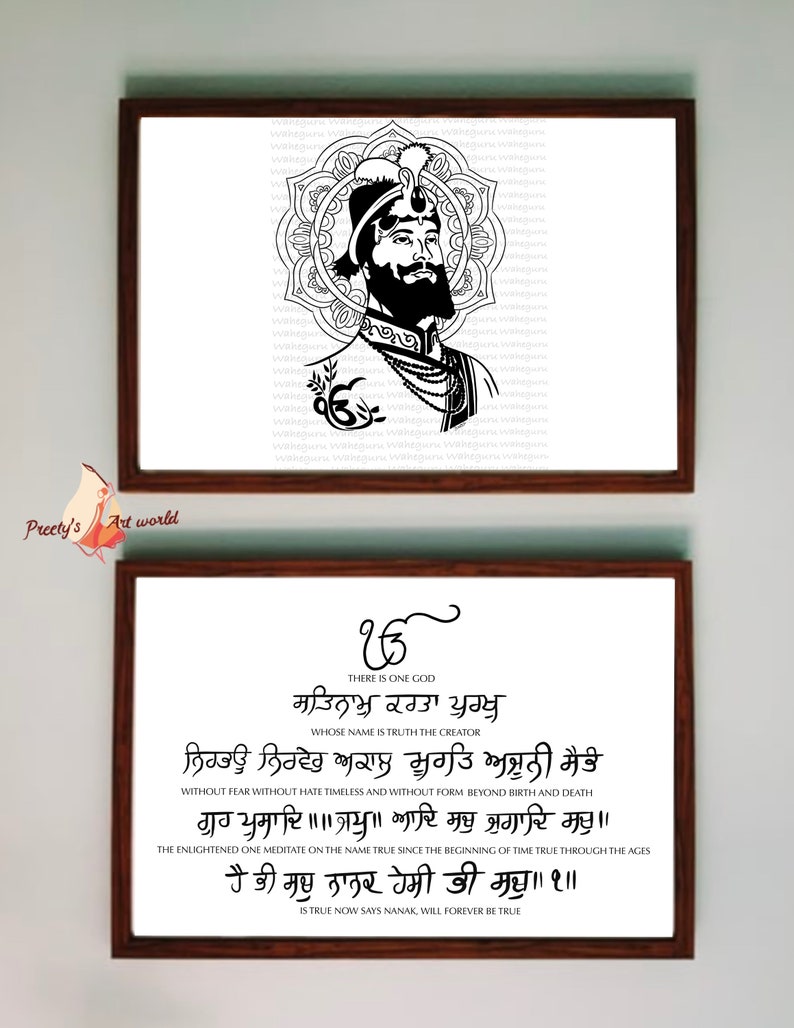 Waheguru Waheguru Waheguru Waheguru Waheguru
Preety's Art world
ੴ
ੴ
THERE IS ONE GOD
ਸਤਿਨਾਮੁ ਕਰਤਾ ਪੁਰਖੁ
WHOSE NAME IS TRUTH THE CREATOR
ਨਿਰਭਉ ਨਿਰਵੇਰੁ ਅਕਾਲੁ ਮੂਰਤਿ ਅਜੂਨੀ ਸੈਭੰ
WITHOUT FEAR WITHOUT HATE TIMELESS AND WITHOUT FORM BEYOND BIRTH AND DEATH
ਗੁਰ ਪ੍ਰਸਾਦਿ॥॥ਜਪੁ॥ ਆਦਿ ਸਚੁ ਜੁਗਾਦਿ ਸਚੁ॥
THE ENLIGHTENED ONE MEDITATE ON THE NAME TRUE SINCE THE BEGINNING OF TIME TRUE THROUGH THE AGES
ਹੈ ਭੀ ਸਚੁ ਨਾਨਕ ਹੇਸੀ ਭੀ ਸਚੁ॥੧॥
IS TRUE NOW SAYS NANAK, WILL FOREVER BE TRUE